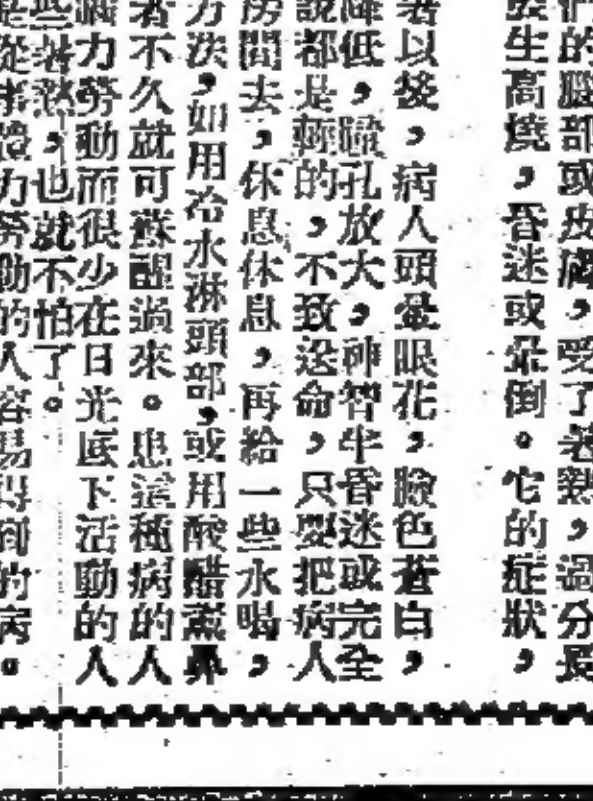 們的腦部或皮膚，受了暑熱，過分長
生高燒，昏迷或暈倒。它的症狀，
暑以後，病人頭暈眼花，臉色蒼白，
降低，瞳孔放大，神智半昏迷或完全
說都是輕的，不致送命，只要把病人
房間去，休息休息，再給一些水喝，
方法，如用冷水淋頭部，或用酸醋薰鼻
者不久就可蘇醒過來。患這種病的人
腦力勞動而很少在日光底下活動的人
些暑熱，也就不怕了。
是從事體力勞動的人容易得到的病。